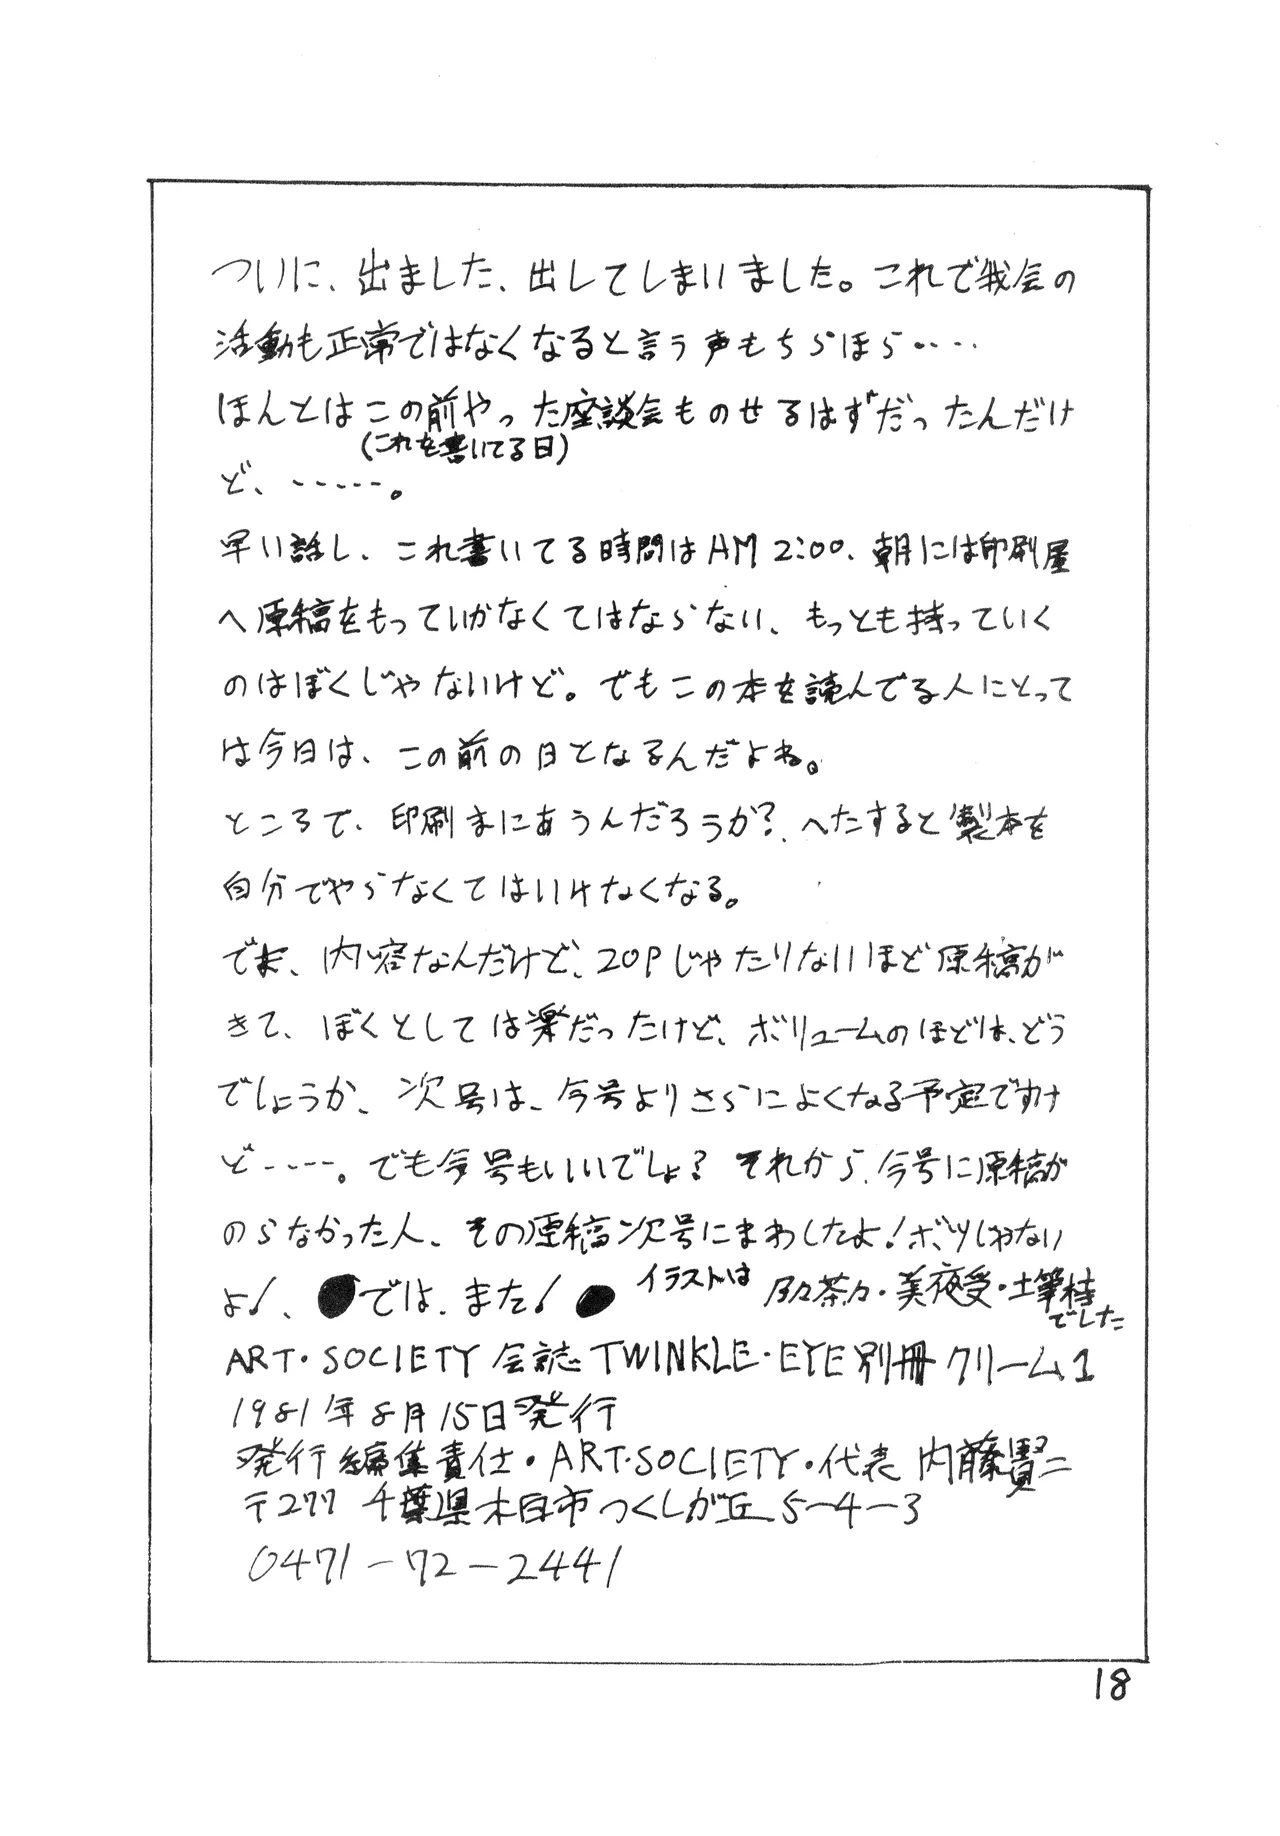 ついに、出ました、出してしまいました。これで我会の
活動も正常ではなくなると言う声もちらほら‥‥
ほんとはこの前やった座談会ものせるはずだったんだけ
(これを書いてる日)
ど、‥‥‥。
早い話し、これ書いてる時間はAM2:00、朝には印刷屋
へ原稿をもっていかなくてはならない、もっとも持っていく
のはぼくじゃないけど。でもこの本を読んでる人にとって
は今日は、この前の日となるんだよね。
ところで、印刷まにあうんだろうか?、へたすると製本を
自分でやらなくてはいけなくなる。
でま、内容なんだけど、20Pじゃたりないほど原稿が
きて、ぼくとしては楽だったけど、ボリュームのほどは、どう
でしょうか、次号は、今号よりさらによくなる予定ですけ
ど‥‥。でも今号もいいでしょ? それから、今号に原稿が
のらなかった人、その原稿次号にまわしたよ!ボツじゃない
よ!、●では、また!● イラストは 茶々・美夜受・土筆桂
でした
ART・SOCIETY 会誌 TWINKLE・EYE 別冊 クリーム1
1981年8月15日発行
発行編集責任・ART・SOCIETY・代表 内藤賢二
〒277 千葉県木白市つくしが丘5-4-3
0471-72-2441
18